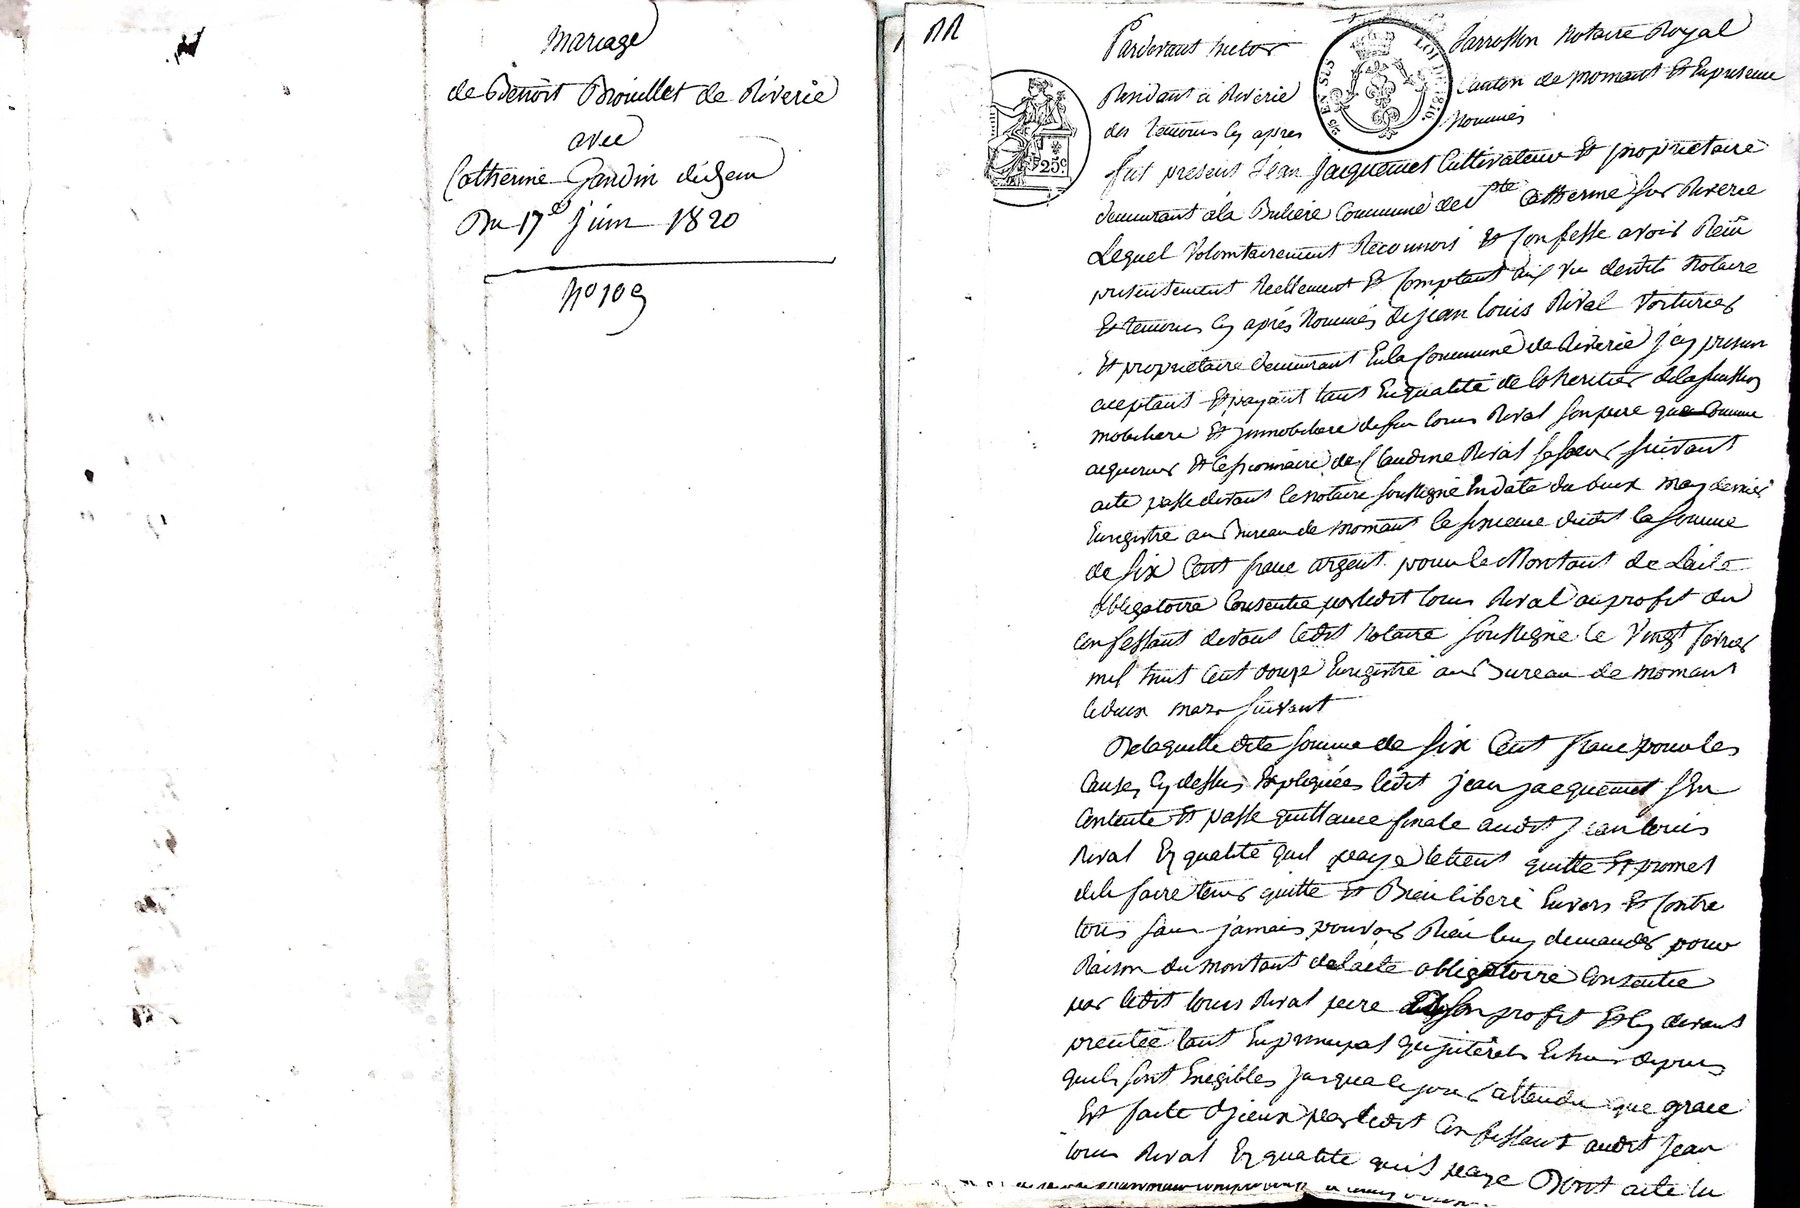 Mariage
de Benoit Brouillet de Riverie
avec
Catherine Gardin dudit lieu
Du 17e juin 1820
N° 109
Pardevant hector Jarrosson Notaire Royal
Residant a Riverie Canton de mornant Et En presence
des temoins cy apres Nommés
fut present Jean Jacquemet Cultivateur Et proprietaire
demeurant a la Commune de Ste Catherine sur Riverie
Lequel Volontairement Reconnois Et Confesse avoir Reçu
presentement Reellement Et Comptant aux vu dudit Notaire
Et temoins cy aprés Nommés de jean Louis Rival Voiturier
Et proprietaire demeurant En la Commune de Riverie j'cy presen
aceptant Et payant tant En qualité de Coheritier de la succession
mobiliere Et jmmobiliere de feu louis Rival son pere que comme
aquereur Et Cessionnaire de Claudine Rival sa soeur suivant
acte passé devant le notaire soussigné En date du deux may dernier
Enregistré au Bureau de mornant le sixieme dudit la somme
de six Cent franc argent pour le Montant de L'acte
obligatoire Consentie par ledit louis Rival au profit du
Confessant devant ledit Notaire soussigné le Vingt fevrier
mil huit Cent douze Enregistré au Bureau de mornant
le deux mars suivant
De laquelle dite somme de six Cent franc pour les
Causes cy dessus Expliquées ledit jean jacquemet s'En
Contente Et passe quittance finale audit Jean louis
Rival En qualité quil paye le tient quitte Et promet
de le faire tenir quitte Et Bien liberé Envers Et Contre
tous sans jamais pouvoir Rien luy demander pour
Raison du montant de l'acte obligatoire Consentie
par ledit louis Rival pere son profit Et cy devant
tant En principal qu'jnterets Echus depuis
quils sont Exigibles jusqua ce jour attendu que grace
Est faite d'jceux par ledit Confessant audit Jean
louis Rival En qualité quil paye Dont acte lu